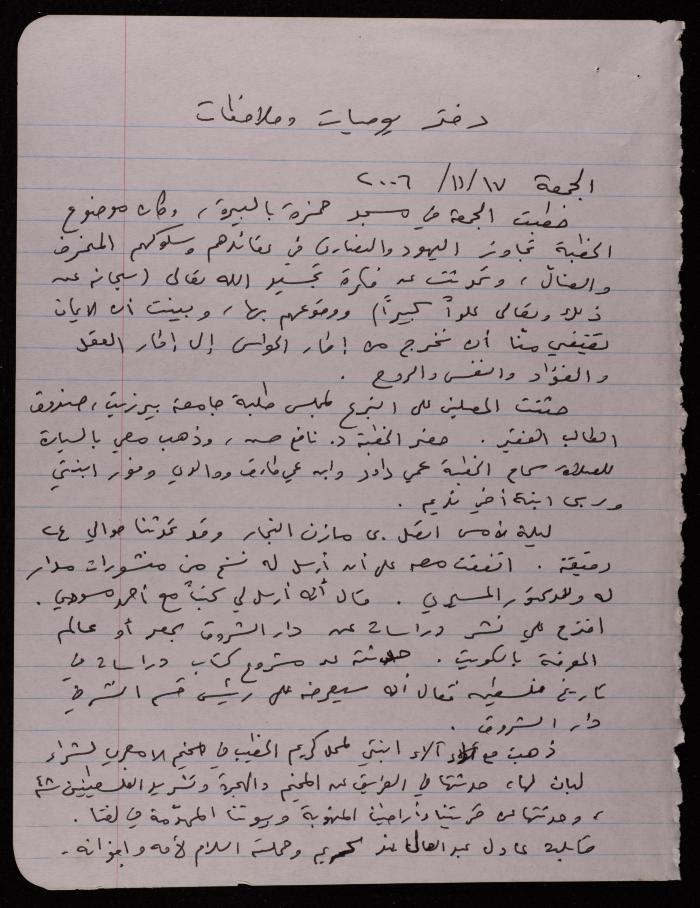 دفتر يوميات وملاحظات
الجمعة ١٧/١١/٢٠٠٦
خطبت الجمعة في مسجد حمزة بالبيرة، وكان موضوع
الخطبة تجاوز اليهود والنصارى في عقائدهم وسلوكهم المنحرف
والضال، وتحدثت عن فكرة تجسيد الله تعالى (سبحانه عن
ذلك وتعالى علواً كبيراً) ووقوعهم بها، وبينت أن الايمان
تقتضي منّا أن نخرج من إطار الحواس إلى إطار العقل
والفؤاد والنفس والروح.
حثثت المصلين على التبرع لمجلس طلبة جامعة بيرزيت، صندوق
الطالب الفقير. حضر الخطبة د. نافع حسن، وذهب معي بالسيارة
للصلاة وسماع الخطبة عمي داود وابن عمي طارق ووالدي ونور ابنتي
وربى ابنة أخي نديم.
ليلة أمس اتصل بي مازن النجار وقد تحدثنا حوالي ٤٢
دقيقة. اتفقت معه على أن أرسل له نسخ من منشورات مدار
له وللدكتور المسيري. قال أنه أرسل لي كتباً مع أحمد
اقترح علي نشر دراسات عن دار الشروق بمصر أو عالم
المعرفة بالكويت. حدثته عن مشروع كتاب دراسات في
تاريخ فلسطين فقال أنه سيعرضه على رئيس قسم النشر في
دار الشروق.
ذهبت مع آلاء ابنتي لمحل كريم الخطيب في مخيم الامعري لشراء
لبان لها، حدثتها في الطريق عن المخيم والهجرة وتشريد الفلسطينيين ٤٨
، وحدثتها عن قريتنا وأراضينا المنهوبة وبيوتنا المهدّمة في لفتا.
قابلت عادل عبد العال عند كريم وحملته السلام لأمه وإخوانه.